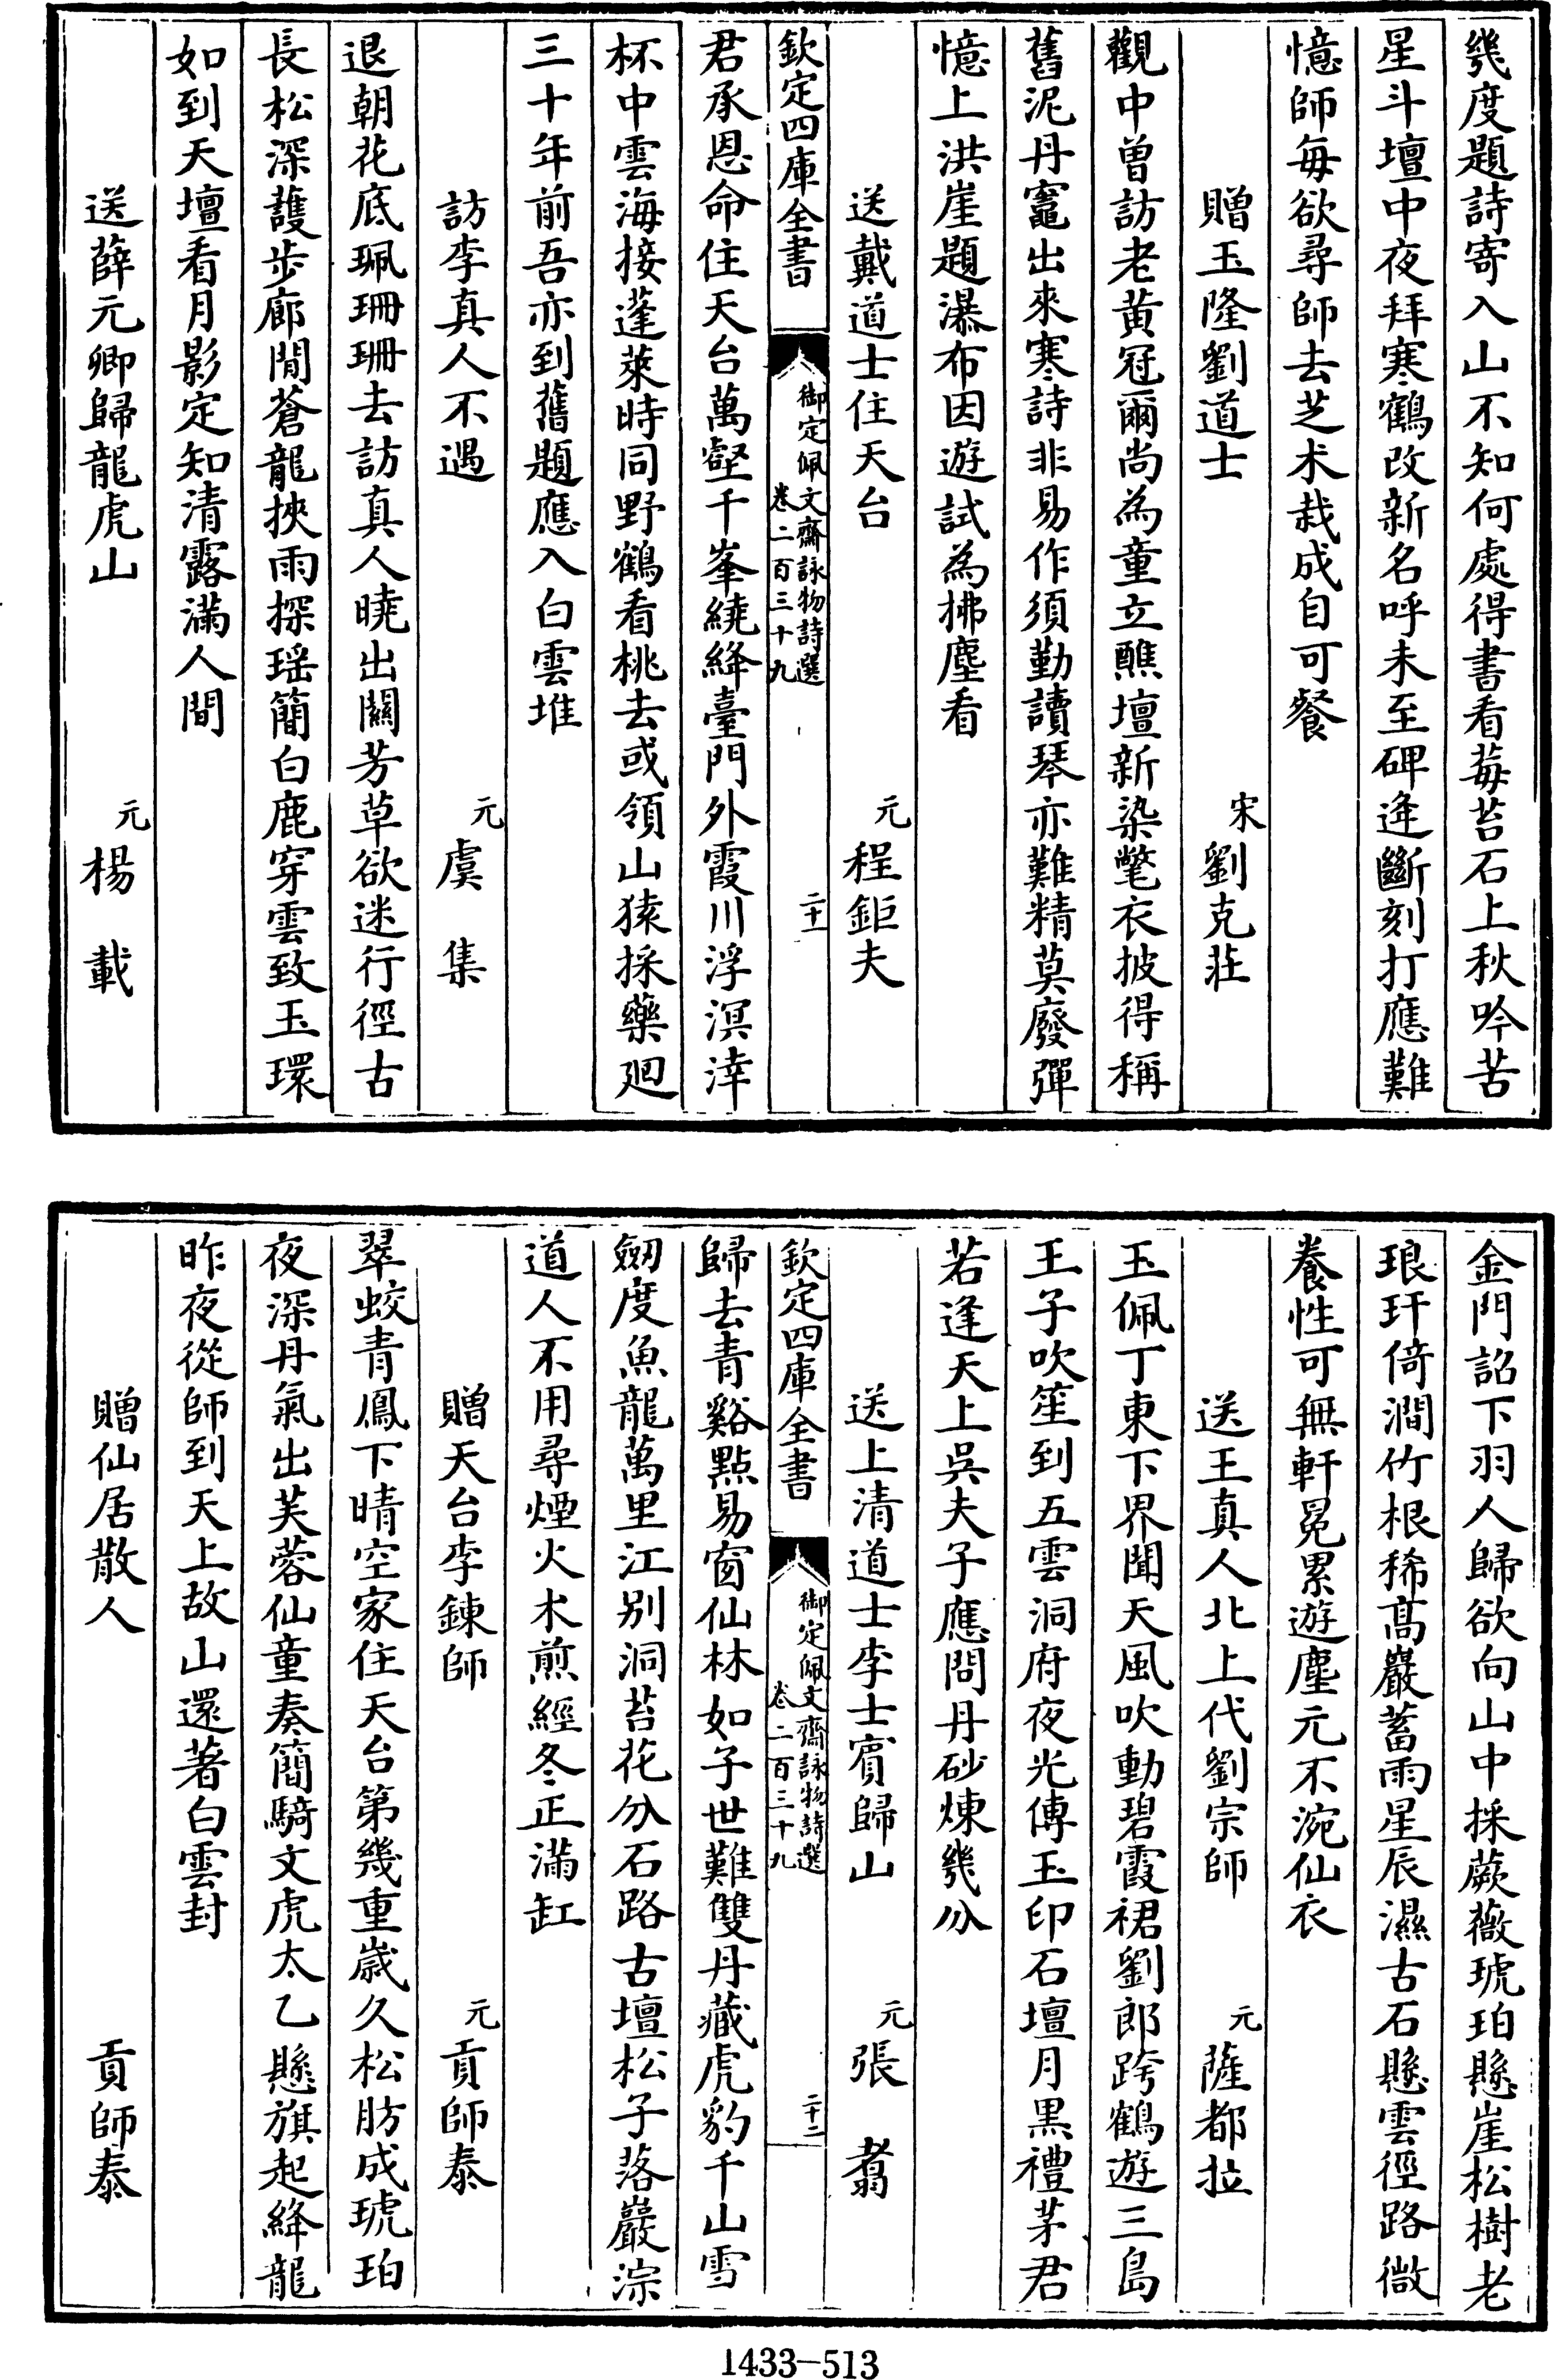 幾度題詩寄入山不知何處得書看莓苔石上秋吟苦
星斗壇中夜拜寒鶴改新名呼未至碑逢斷刻打應難
憶師每欲尋師去芝术栽成自可餐
贈玉隆劉道士 宋劉克莊
觀中曽訪老黄冠爾尚為童立醮壇新染氅衣披得稱
舊泥丹竈出來寒詩非易作須勤讀琴亦難精莫廢彈
憶上洪崖題瀑布因遊試為拂塵看
送戴道士住天台 元程鉅夫
欽定四庫全書 御定佩文齋詠物詩選 卷二百三十九 二十一
君承恩命住天台萬壑千峯繞絳臺門外霞川浮溟涬
杯中雲海接蓬萊時同野鶴看桃去或領山猿採藥廻
三十年前吾亦到舊題應入白雲堆
訪李真人不遇 元虞集
退朝花底珮珊珊去訪真人曉出關芳草欲迷行徑古
長松深護步廊閒蒼龍挾雨探瑶簡白鹿穿雲致玉環
如到天壇看月影定知清露滿人間
送薛元卿歸龍虎山 元楊載
金門詔下羽人歸欲向山中採蕨薇琥珀懸崖松樹老
琅玕倚澗竹根稀髙巖蓄雨星辰濕古石懸雲徑路微
養性可無軒冕累遊塵元不涴仙衣
送王真人北上代劉宗師 元薩都拉
玉佩丁東下界聞天風吹動碧霞裙劉郎跨鶴遊三島
王子吹笙到五雲洞府夜光傳玉印石壇月黒禮茅君
若逢天上吳夫子應問丹砂煉幾分
送上清道士李士賓歸山 元張翥
欽定四庫全書 御定佩文齋詠物詩選 卷二百三十九 二十二
歸去青谿點易窗仙林如子世難雙丹藏虎豹千山雪
劒度魚龍萬里江别洞苔花分石路古壇松子落巖淙
道人不用尋煙火术煎經冬正滿缸
贈天台李鍊師 元貢師泰
翠蛟青鳳下晴空家住天台第幾重嵗久松肪成琥珀
夜深丹氣出芙蓉仙童奏簡騎文虎太乙懸旗起絳龍
昨夜從師到天上故山還著白雲封
贈仙居散人 貢師泰
1433-513